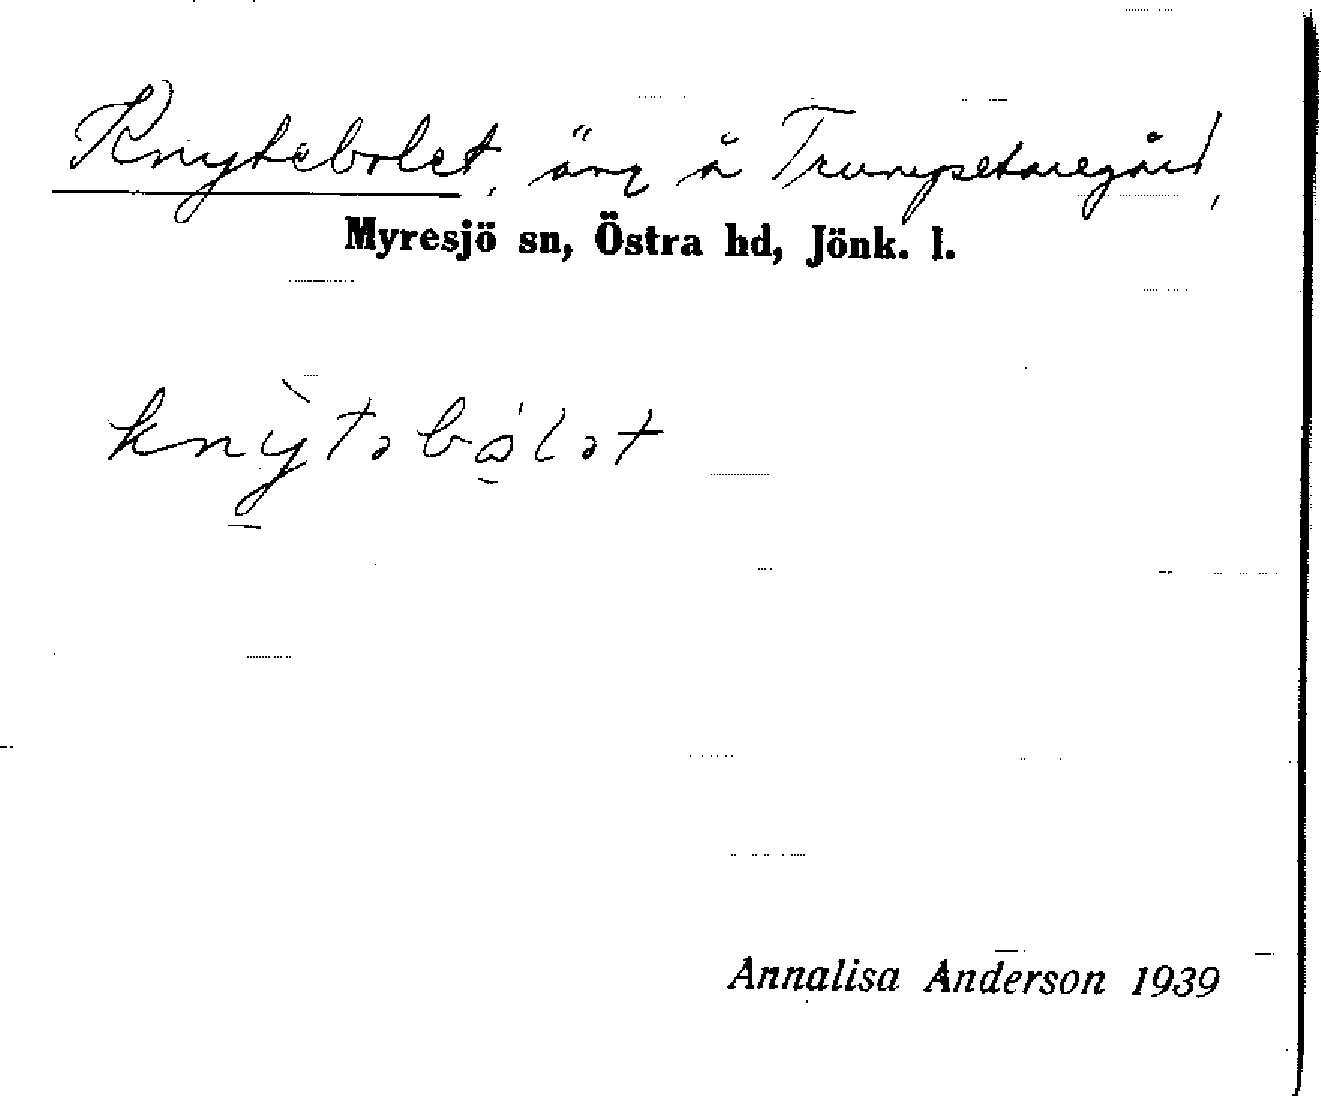 Knytebolet, äng å Trumpetaregård,
Myresjö sn, Östra hd, Jönk. l.
knỳ̠təbώ̠lət
Annalisa Anderson 1939